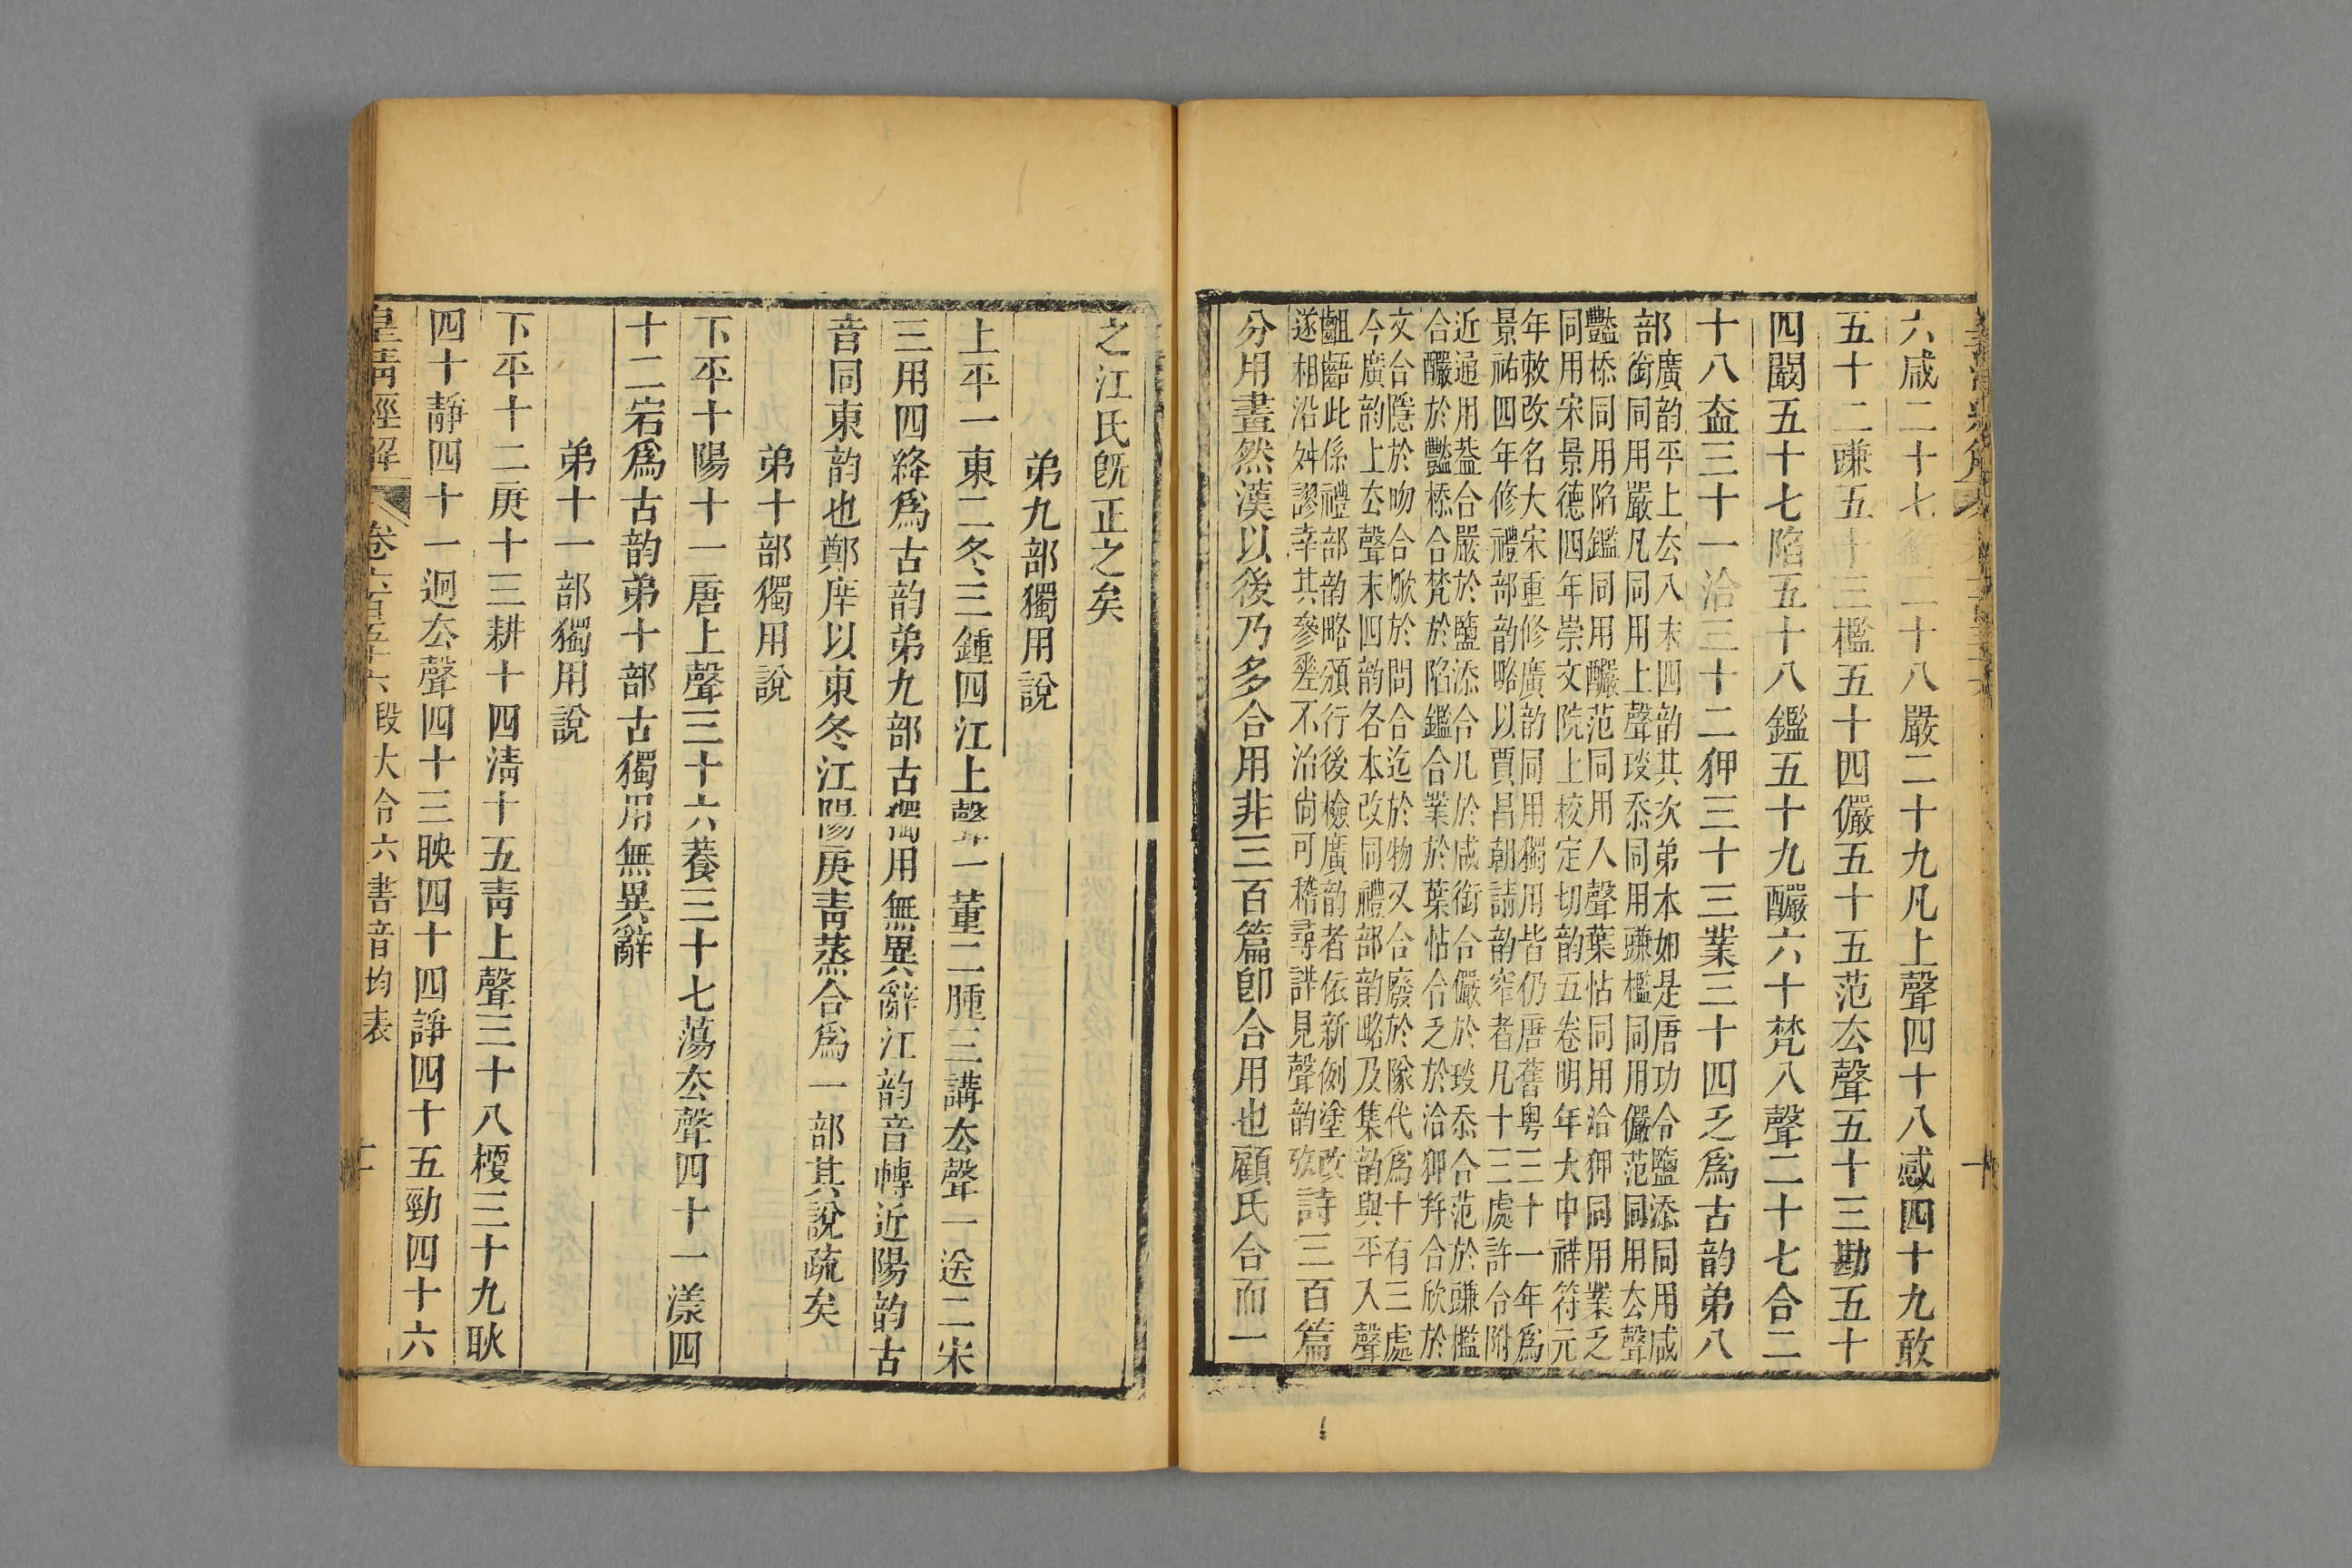 六咸二十七銜二十八嚴二十九凡上聲四十八感四十九敢
五十二豏五十三檻五十四儼五十五范厺聲五十三勘五十
四闞五十七陷五十八鑑五十九釅六十梵入聲二十七合二
十八盍三十一洽三十二狎三十三業三十四乏爲古韵弟八
部
廣韵平上厺入末四韵其次弟本如是唐功令鹽添同用咸
銜同用嚴凡同用上聲琰忝同用豏檻同用儼范同用厺聲
豔㮇同用陷鑑同用釅范同用入聲葉怗同用洽狎同用業乏
同用宋景德四年崇文院上校定切韵五卷明年大中祥符元
年敕改名大宋重修廣韵同用獨用皆仍唐舊粤三十一年爲
景祐四年修禮部韵略以賈昌朝請韵窄者凡十三處許合附
近通用葢合嚴於鹽添合凡於咸銜合儼於琰忝合范於豏檻
合釅於豔㮇合梵於陷鑑合業於葉怗合乏於洽狎幷合欣於
文合隱於吻合焮於問合迄於物又合廢於隊代爲十有三處
今廣韵上厺聲末四韵各本改同禮部韵略及集韵與平入聲
齟齬此係禮部韵略頒行後檢廣韵者依新例塗改
遂相沿舛謬幸其參差不治尙可稽尋詳見聲韵攷
詩三百篇
分用畫然漢以後乃多合用非三百篇卽合用也顧氏合而一
之江氏旣正之矣
弟九部獨用說
上平一東二冬三鍾四江上聲一董二腫三講厺聲一送二宋
三用四絳爲古韵弟九部古獨用無異辭江韵音轉近陽韵古
音同東韵也鄭庠以東冬江陽庚靑蒸合爲一部其說疏矣
弟十部獨用說
下平十陽十一唐上聲三十六養三十七蕩厺聲四十一漾四
十二宕爲古韵弟十部古獨用無異辭
弟十一部獨用說
下平十二庚十三耕十四淸十五靑上聲三十八梗三十九耿
四十靜四十一迥厺聲四十三映四十四諍四十五勁四十六
皇淸經解 卷六百五十六 段大令六書音均表